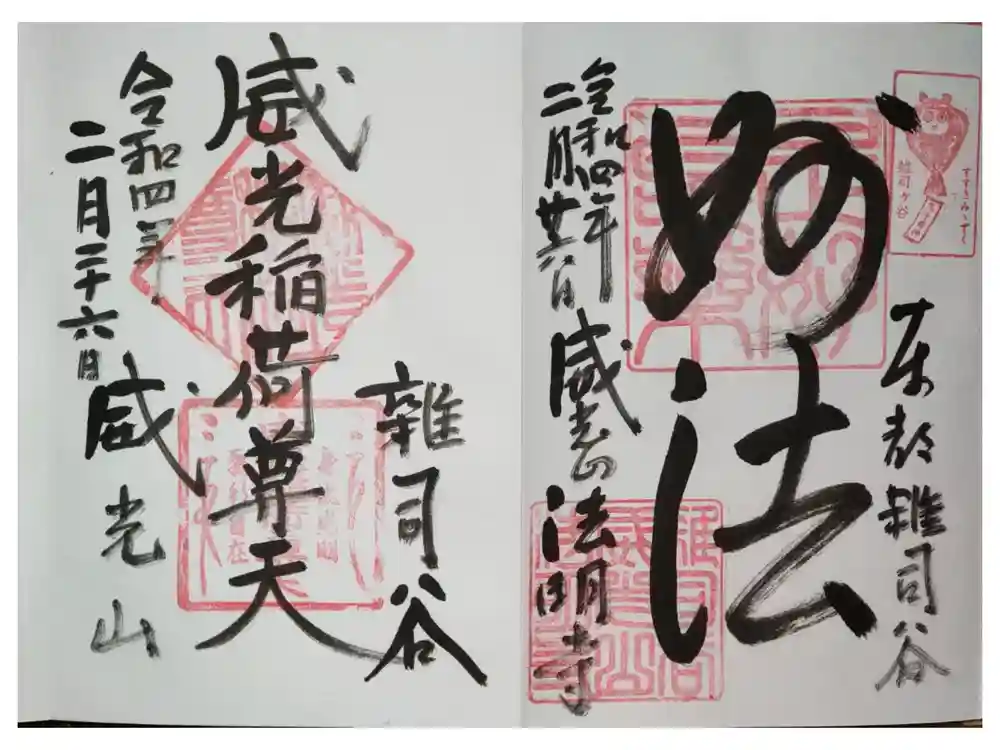 東都雑司谷
妙法
令和四年
二月廿六日
威光山
法明寺
すすきみゝずく
雑司ヶ谷
雑司谷
威光稲荷尊天
令和四年
二月二十六日
威光山